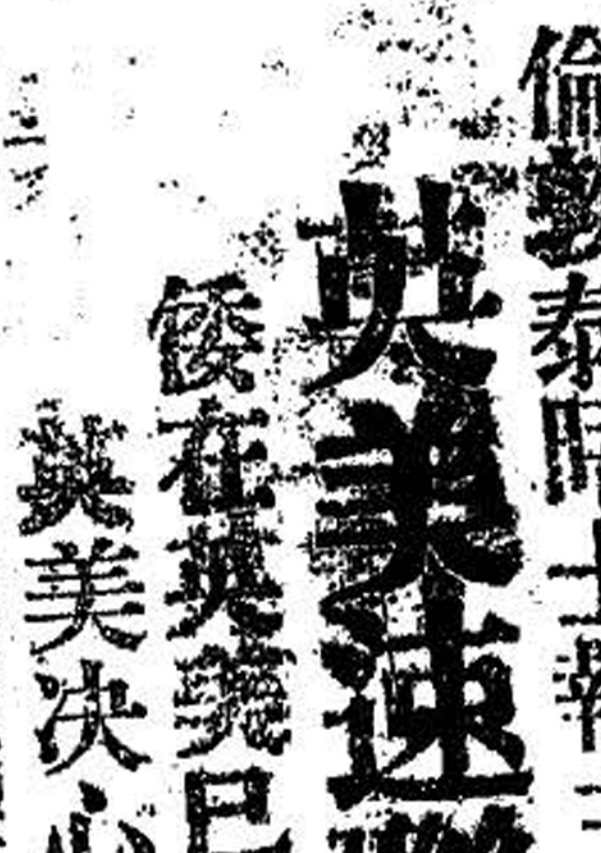 倫敦泰晤士報
英美速
倭在英美
英美決心